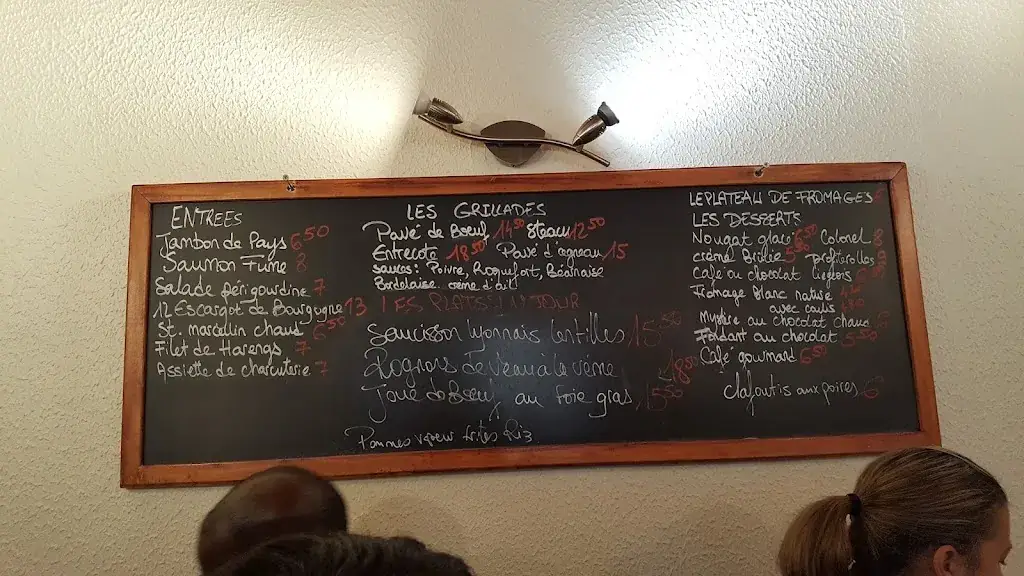 ENTREES
Jambon de Pays 6 50
Saumon Fumé 8
Salade périgourdine 7
12 Escargot de Bourgogne 13
St. marcellin chaud 6 50
Filet de Harengs 7
Assiette de charcuterie 7
LES GRILLADES
Pavé de Boeuf 14 50 Steau 12 50
Entrecote 18 50 Pavé d'agneau 15
sauces: Poivre, Roquefort, Béarnaise
Bordelaise creme d'ail
LES PLATS DU JOUR
Saucisson lyonnais lentilles 15 50
Rognons de Veau à la crème 18 50
Joue de Boeuf au foie gras 15 50
Pommes vapeur frites Riz
LE PLATEAU DE FROMAGES
LES DESSERTS
Nougat glacé 6 50 Colonel 8
crème Brûlée Profiterolles
Café ou chocolat liegeois
Fromage Blanc nature
avec coulis
Mystère au chocolat chaud
Fondant au chocolat 5 50
Café gourmand 6 50
Clafoutis aux poires 6